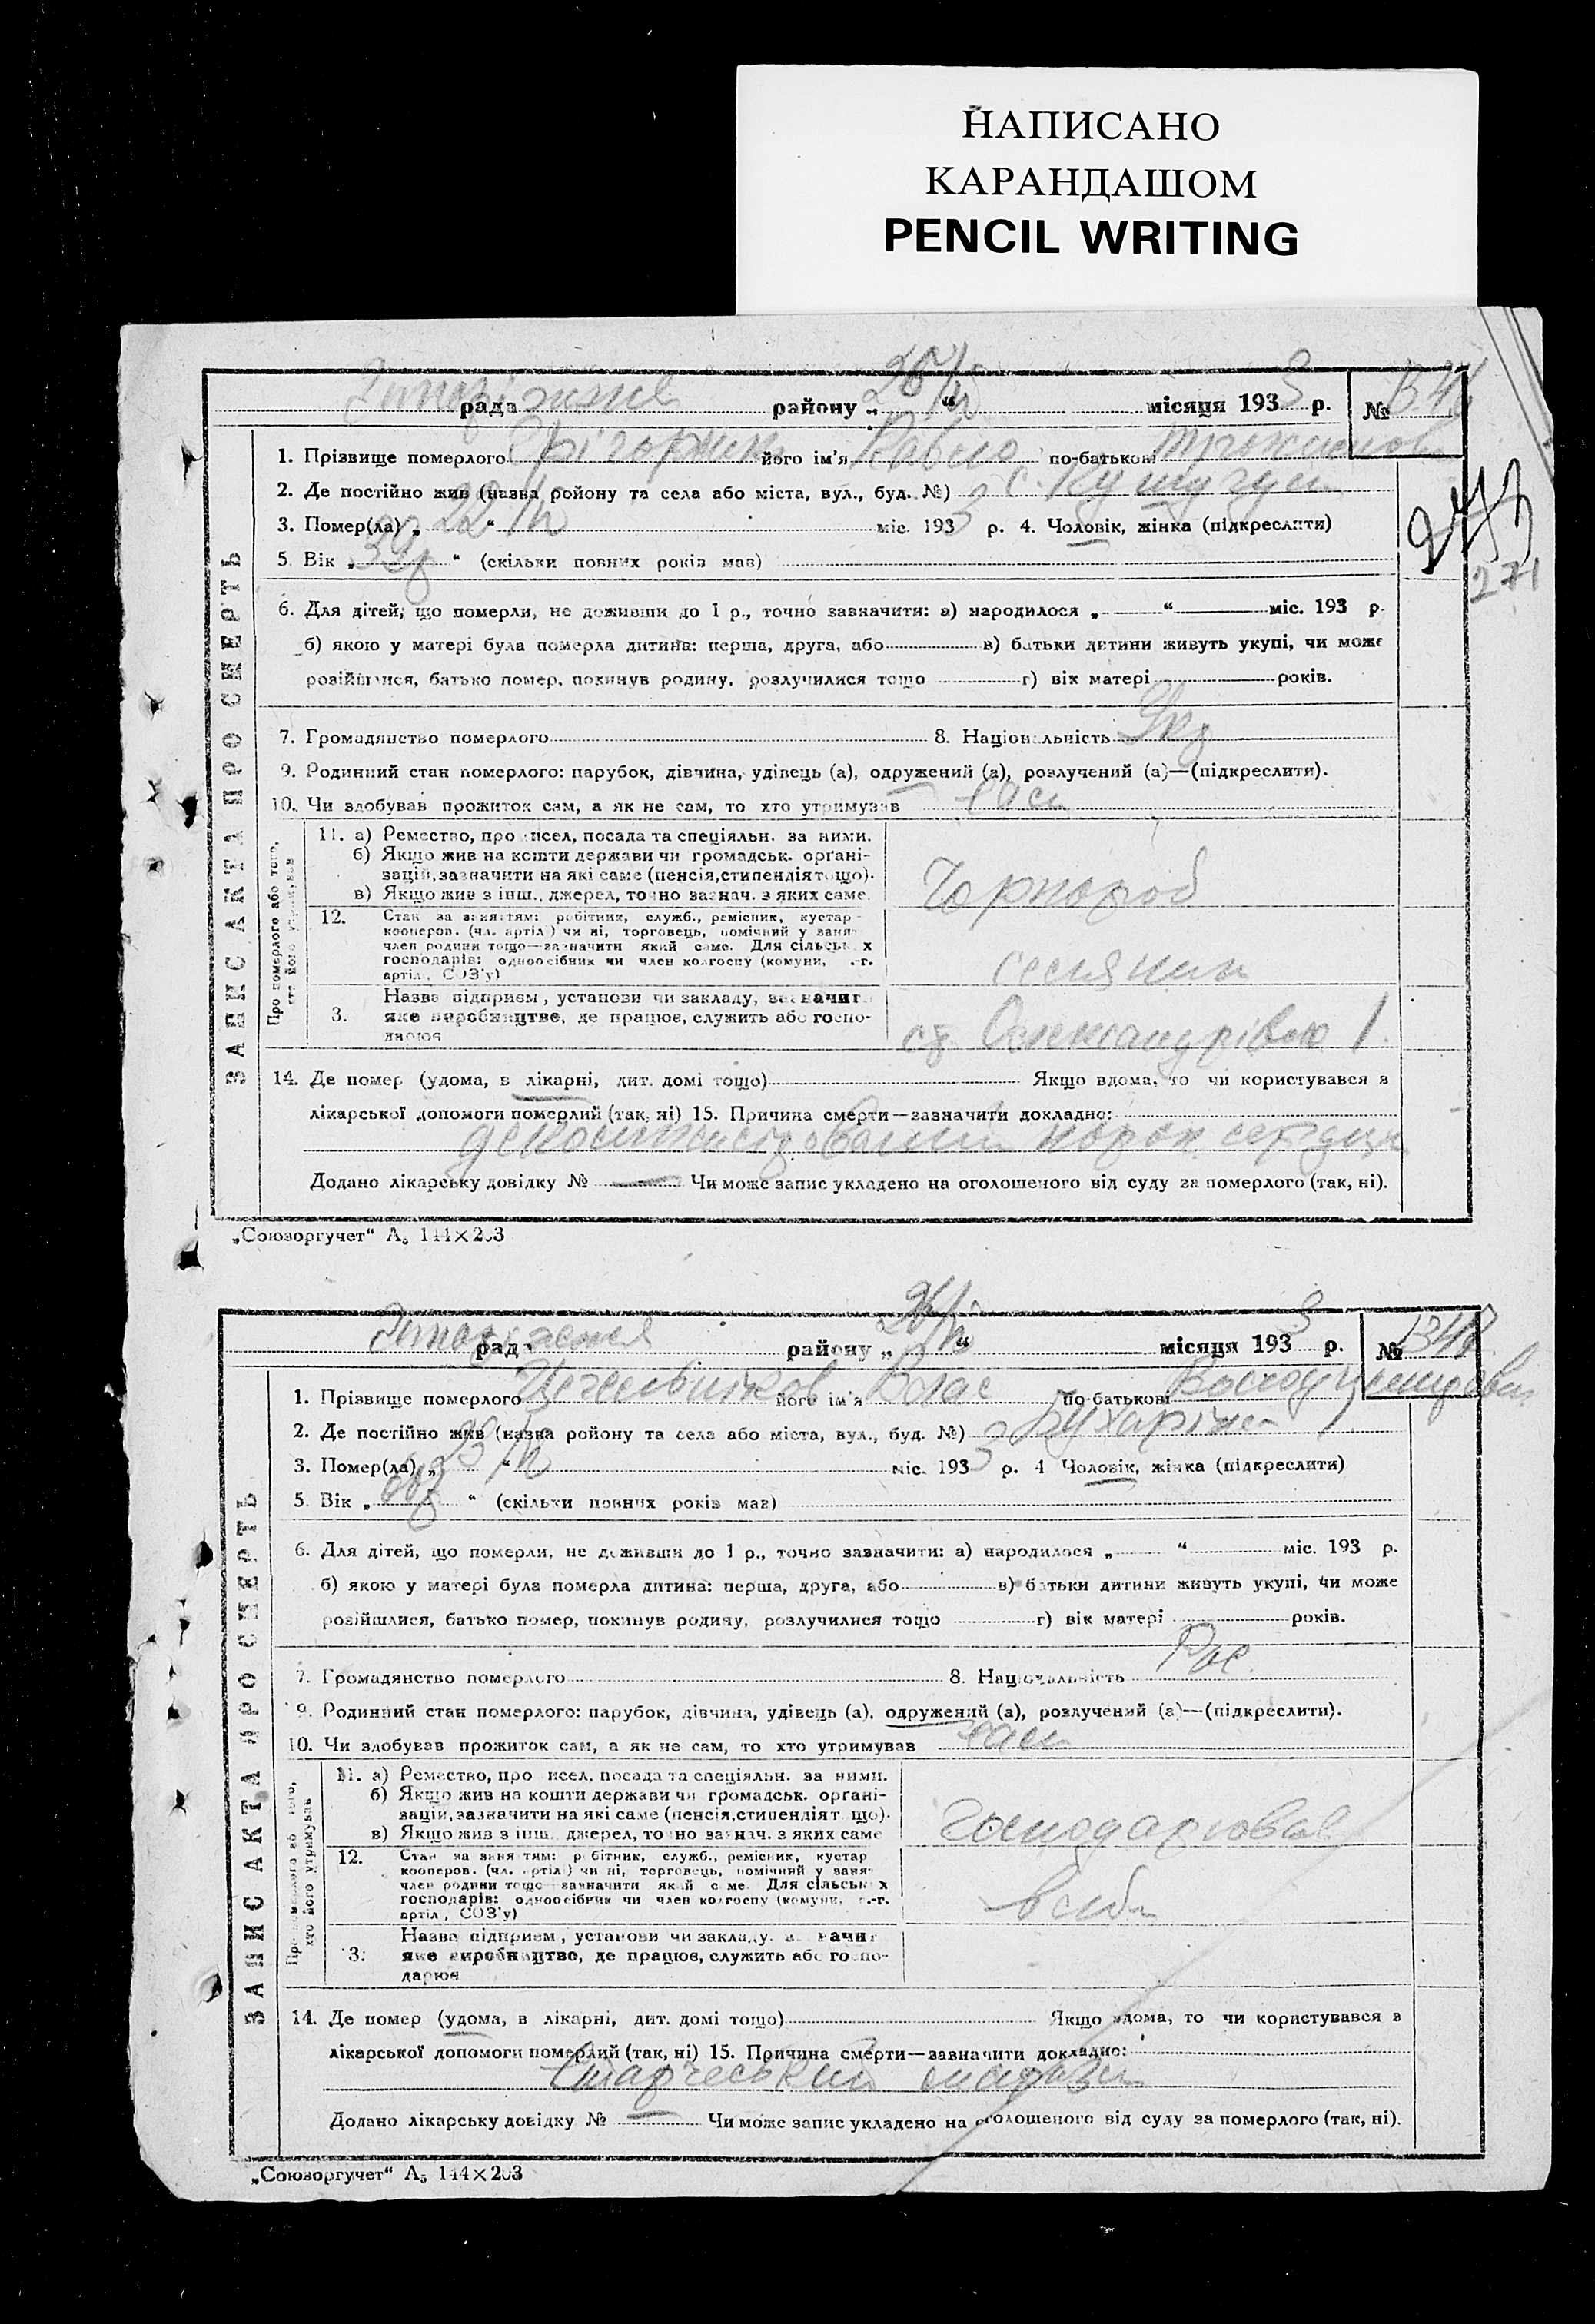 НАПИСАНО
КАРАНДАШОМ
PENCIL WRITING
рада району „ “ місяця 1933 р. №
1. Прізвище померлого його ім'я Павло по-батькові
2. Де постійно жив (назва району та села або міста, вул., буд. №) с. Кушугум
3. Помер(ла) „22/ “ міс. 1933 р. 4. Чоловік, жінка (підкреслити)
5. Вік „ “ (скільки повних років мав)
273
271
6. Для дітей, що померли, не доживши до 1 р., точно зазначити: а) народилося „ “ міс. 193 р.
б) якою у матері була померла дитина: перша, друга, або в) батьки дитини живуть укупі, чи може
розійшлися, батько помер, покинув родину, розлучилися тощо г) вік матері років.
7. Громадянство померлого 8. Національність Укр
9. Родинний стан померлого: парубок, дівчина, удівець (а), одружений (а), розлучений (а)—(підкреслити).
10. Чи здобував прожиток сам, а як не сам, то хто утримував сам
ЗАПИС АКТА ПРО СМЕРТЬ
Про померлого або того, хто його утримував
11. а) Ремество, промисел, посада та спеціяльн. за ними.
б) Якщо жив на кошти держави чи громадськ. органі-
зацій, зазначити на які саме (пенсія, стипендія тощо).
в) Якщо жив з інш. джерел, точно зазнач. з яких саме.
Чорнороб
12. Стан за заняттям: робітник, служб., ремісник, кустар
кооперов. (чл. артілі) чи ні, торговець, помічний у заня-
член родини тощо—зазначити який саме. Для сільськ х
господарів: одноосібник чи член колгоспу (комуни, .-г.
артіл., СОЗ'у)
селянин
3. Назва підприєм., установи чи закладу, зазначит
яке виробництво, де працює, служить або госпо-
дарює
Олександрівою 1.
14. Де помер (удома, в лікарні, дит. домі тощо) Якщо вдома, то чи користувався з
лікарської допомоги померлий (так, ні) 15. Причина смерти—зазначити докладно:
порок сердца
Додано лікарську довідку № — Чи може запис укладено на оголошеного від суду за померлого (так, ні).
„Союзоргучет“ А₅ 144×203
рад району „ “ місяця 1933 р. № 1348
1. Прізвище померлого його ім'я Влас по-батькові
2. Де постійно жив (назва району та села або міста, вул., буд. №) Бухаріна 1
3. Помер(ла) „23/ “ міс. 1933 р. 4 Чоловік, жінка (підкреслити)
5. Вік „ “ (скільки повних років мав)
6. Для дітей, що померли, не доживши до 1 р., точно зазначити: а) народилося „ “ міс. 193 р.
б) якою у матері була померла дитина: перша, друга, або в) батьки дитини живуть укупі, чи може
розійшлися, батько помер, покинув родину, розлучилися тощо г) вік матері років.
7. Громадянство померлого 8. Національність Рос.
9. Родинний стан померлого: парубок, дівчина, удівець (а), одружений (а), розлучений (а)—(підкреслити).
10. Чи здобував прожиток сам, а як не сам, то хто утримував сам
ЗАПИС АКТА ПРО СМЕРТЬ
Про померлого або того, хто його утримував
11. а) Ремество, промисел, посада та спеціяльн. за ними.
б) Якщо жив на кошти держави чи громадськ. органі-
зацій, зазначити на які саме (пенсія, стипендія т що).
в) Якщо жив з інш. джерел, точно зазнач. з яких саме
Господарював
12. Стан за заняттям: робітник, служб., ремісник, кустар
кооперов. (чл. артілі) чи ні, торговець, помічний у заня-
член родини тощо зазначити який саме. Для сільськ х
господарів: одноосібник чи член колгоспу (комуни, .-г.
артіл., СОЗ'у)
в себе
3. Назва підприєм., установи чи закладу, зазначит
яке виробництво, де працює, служить або госпо-
дарює
14. Де помер (удома, в лікарні, дит. домі тощо) Якщо вдома, то чи користувався з
лікарської допомоги померлий (так, ні) 15. Причина смерти—зазначити докладно:
Старческий маразм
Додано лікарську довідку № — Чи може запис укладено на оголошеного від суду за померлого (так, ні).
„Союзоргучет“ А₅ 144×203